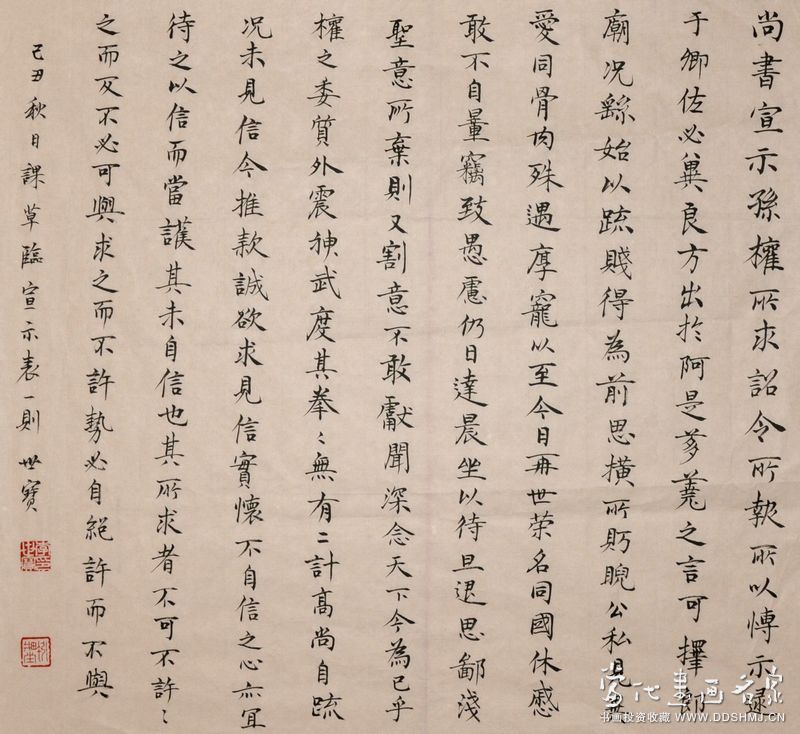 尚書宣示孫權所求詔令所報所以博示逮
于卿佐必冀良方出於阿是芻蕘之言可擇郎
廟况繇始以疏賤得為前思橫所眄睨公私見異
愛同骨肉殊遇厚寵以至今日再世榮名同國休慼
敢不自量竊致愚慮仍日達晨坐以待旦退思鄙淺
聖意所棄則又割意不敢獻聞深念天下今為已平
權之委質外震神武度其拳〻無有二計高尚自疏
况未見信今推款誠欲求見信實懷不自信之心亦宜
待之以信而當護其未自信也其所求者不可不許〻
之而反不必可與求之而不許勢必自絕許而不與
己丑秋日課草臨宣示表一則 世寶
當代書画名家
书画投资收藏 WWW.DDSHMJ.CN